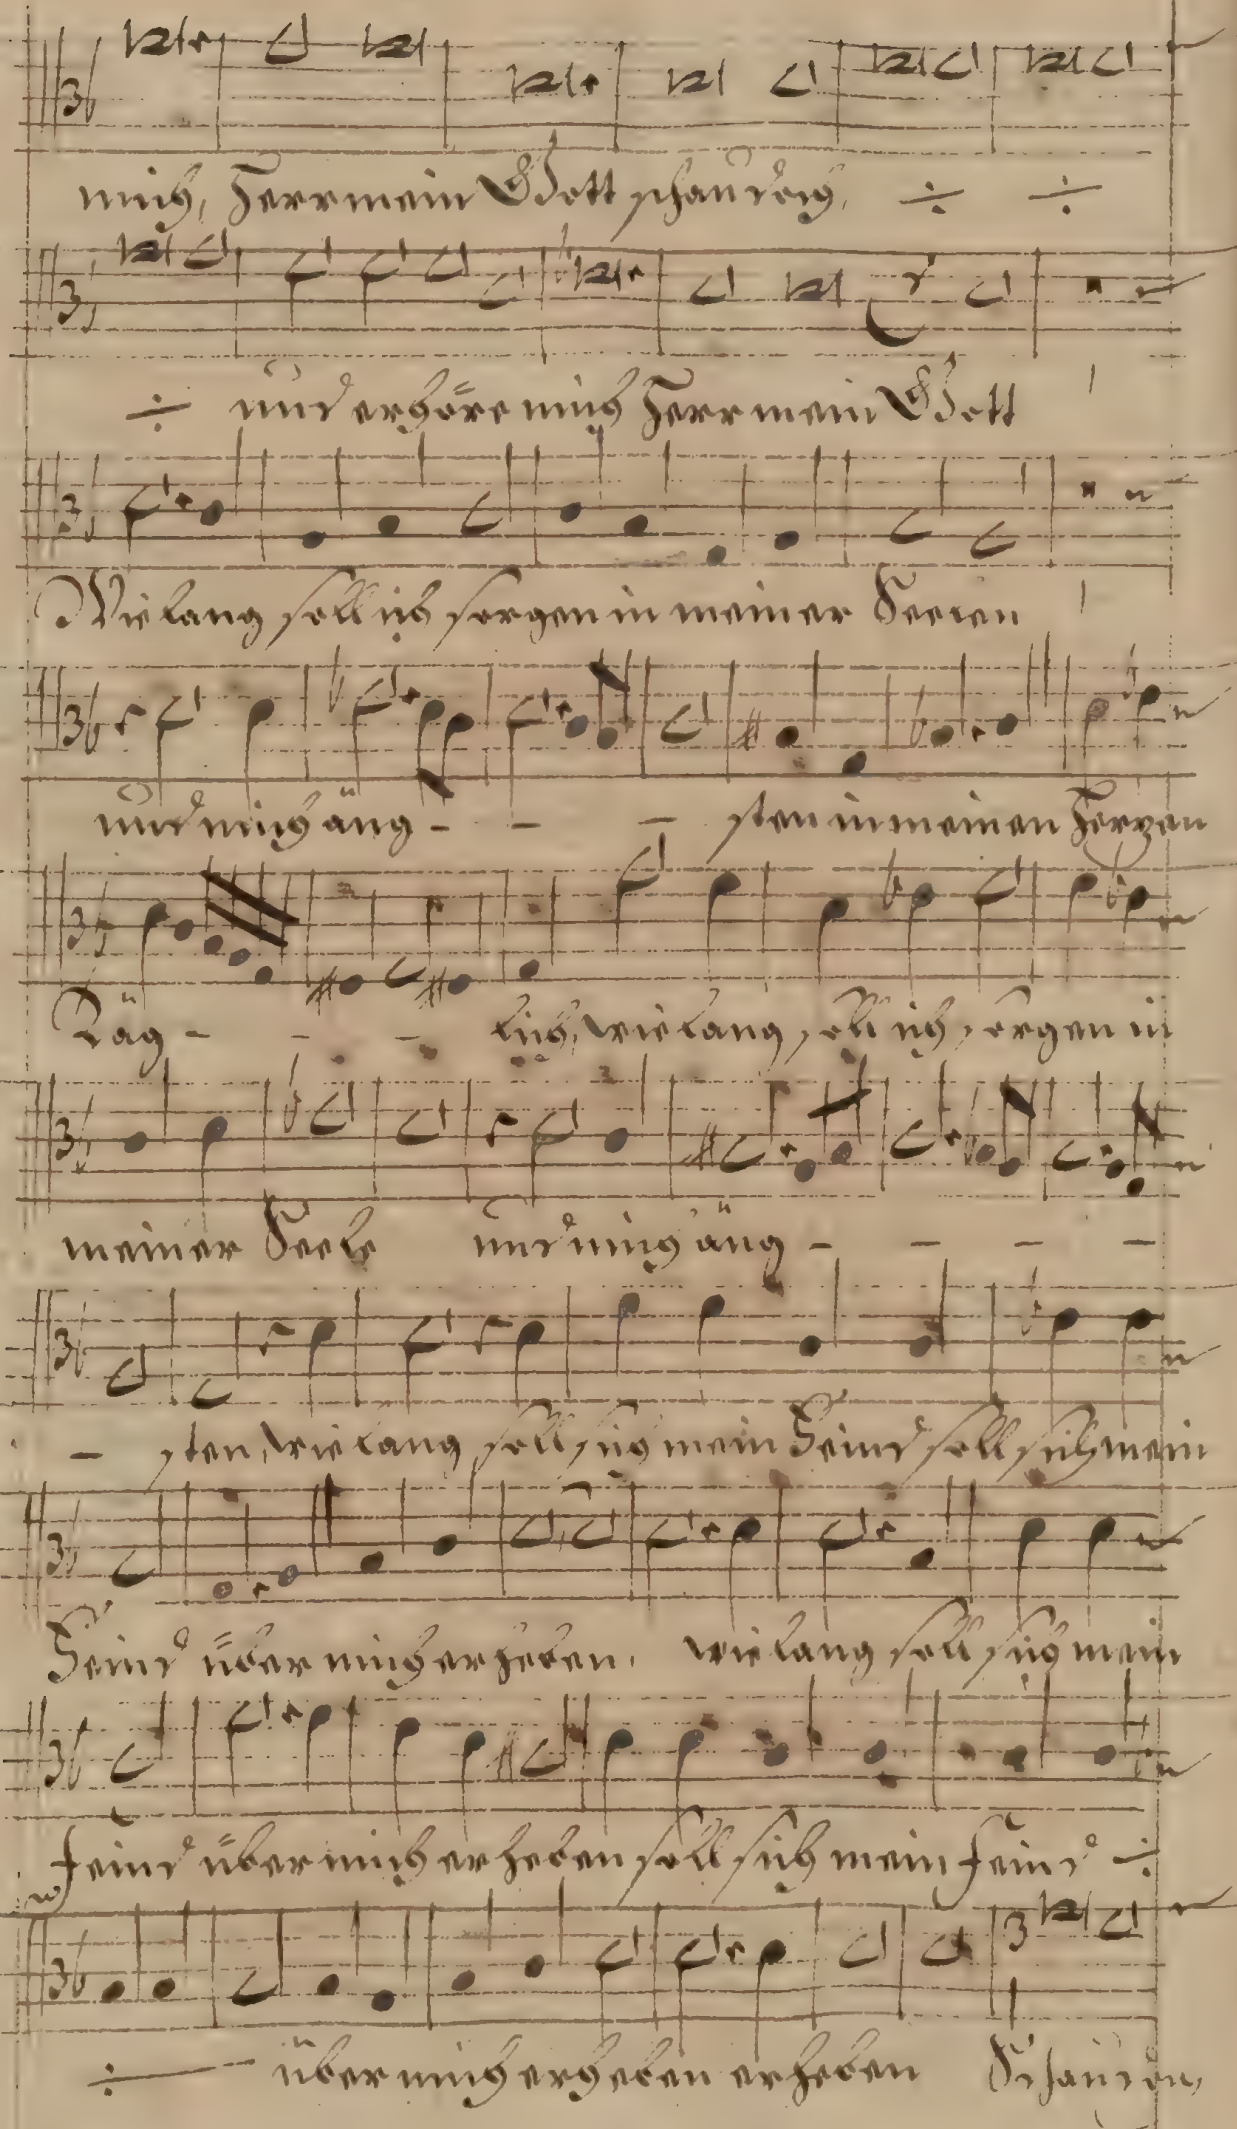 mich, Herr mein Gott schau doch, ÷ ÷
÷ und erhöre mich Herr mein Gott
Wie lang soll ich sorgen in meiner Seelen
und mich äng - - - sten in meinen Herzen
Täg - - - lich, wie lang soll ich sorgen in
meiner Seele und mich äng - - - -
- sten, wie lang soll sich mein Feind soll sich mein
Feind über mich erheben, wie lang soll sich mein
Feind über mich erheben soll sich mein Feind ÷
÷ über mich erheben erheben Schau